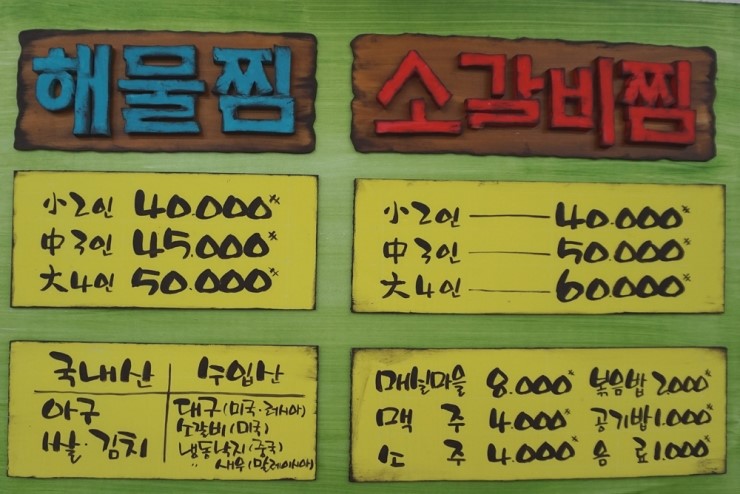 해물찜
小2인 40.000원
中3인 45.000원
大4인 50.000원
소갈비찜
小2인 40.000원
中3인 50.000원
大4인 60.000원
국내산 수입산
아구
쌀·김치
대구(미국·러시아)
소갈비(미국)
냉동낙지(중국)
〃 새우(말레이시아)
매실마을 8.000원 볶음밥 2.000원
맥 주 4.000원 공기밥 1.000원
소 주 4.000원 음 료 1.000원